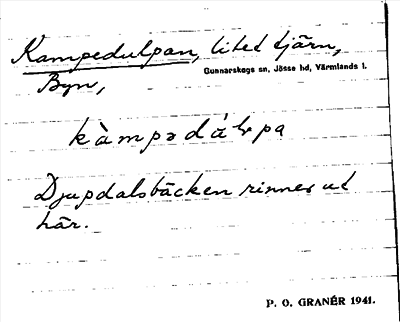 Kampedulpan, litet tjärn,
Gunnarskogs sn, Jösse hd, Värmlands l.
Byn,
Djupdalsbäcken rinner ut
här.
P. O. GRANÉR 1941.